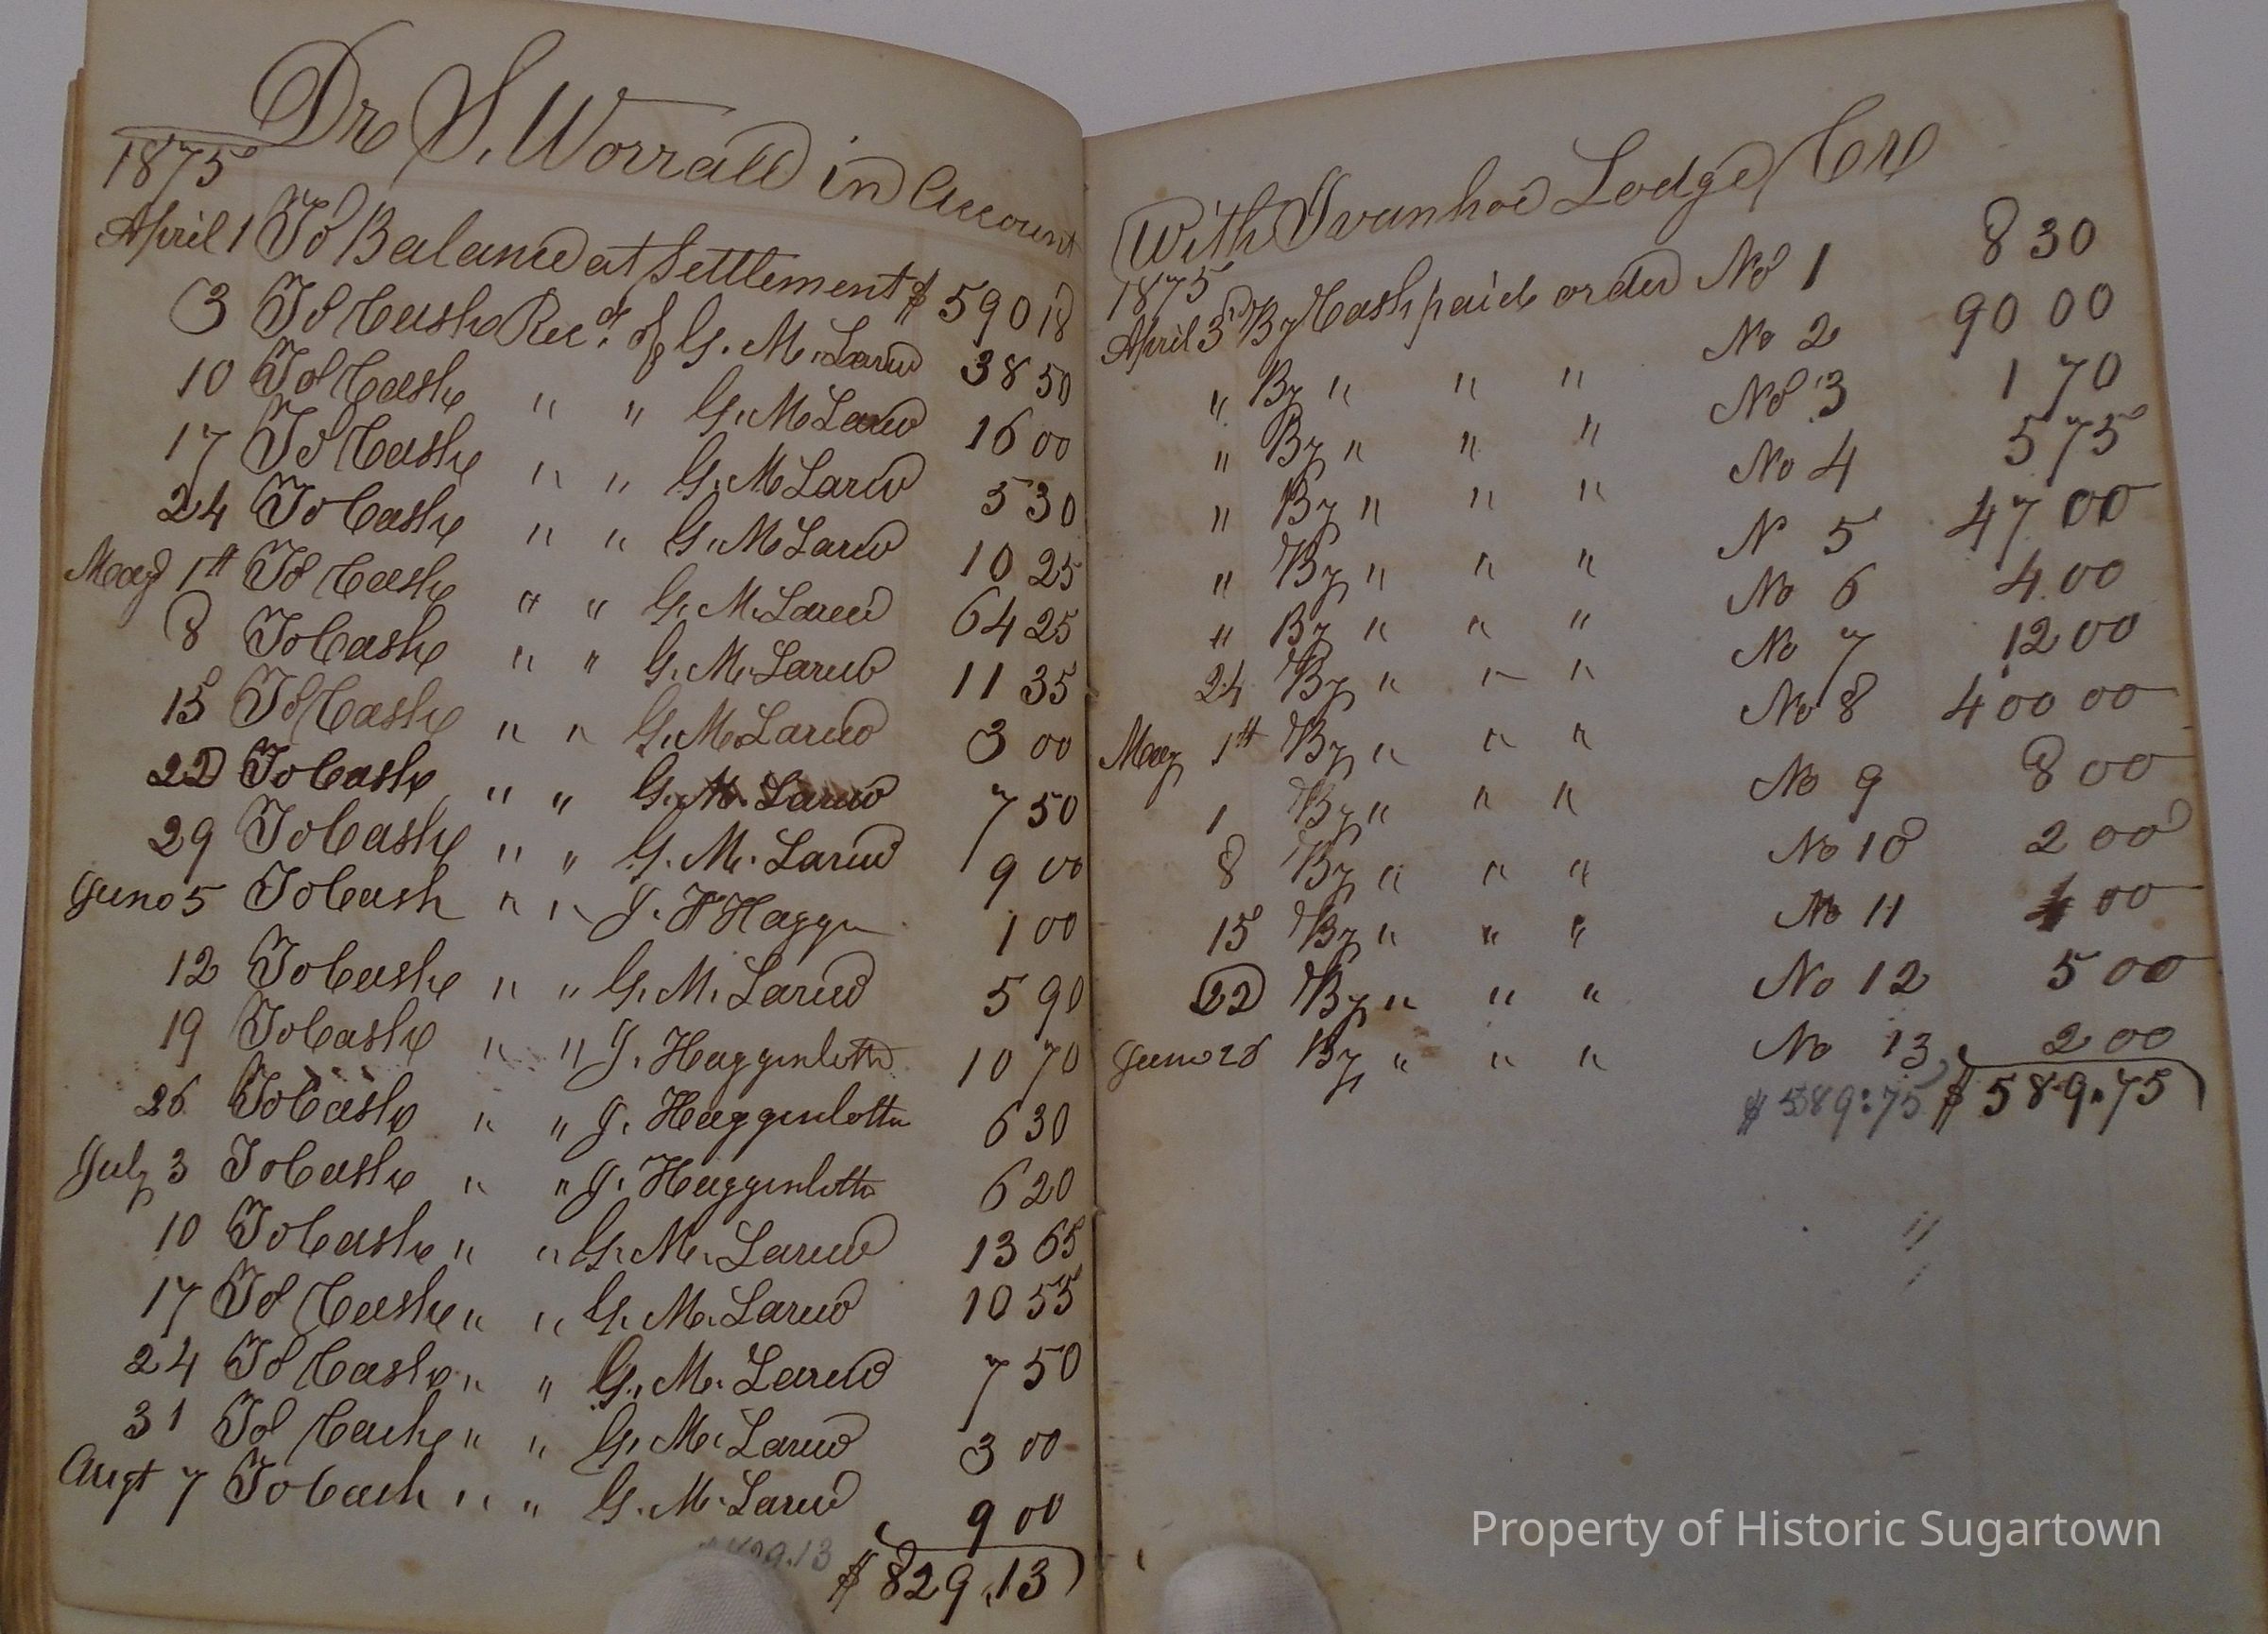 Dr S. Worrall in Account
1875
April 1 To Balance at Settlement $ 590 18
3 To Cash Recd. of G. M. Larew 38 50
10 To Cash " " G. M. Larew 16 00
17 To Cash " " G. M. Larew 5 30
24 To Cash " " G. M. Larew 10 25
May 1st To Cash " " G. M. Larew 64 25
8 To Cash " " G. M. Larew 11 35
15 To Cash " " G. M. Larew 3 00
22 To Cash " " G. M. Larew 7 50
29 To Cash " " G. M. Larew 9 00
June 5 To Cash " " J. H 1 00
12 To Cash " " G. M. Larew 5 90
19 To Cash " " J. Hagginbotto 10 70
26 To Cash " " J. Hagginbotto 6 30
July 3 To Cash " " J. Hagginbotto 6 20
10 To Cash " " G. M. Larew 13 65
17 To Cash " " G. M. Larew 10 55
24 To Cash " " G. M. Larew 7 50
31 To Cash " " G. M. Larew 3 00
Augt 7 To Cash " " G. M. Larew 9 00
$ 829.13
With Ivanhoe Lodge Cr
1875
April 3 By Cash paid order No 1 8 30
" By " " " No 2 90 00
" By " " " No 3 1 70
" By " " " No 4 5 75
" By " " " N 5 47 00
" By " " " No 6 4 00
24 By " " " No 7 12 00
May 1st By " " " No 8 400 00
1 By " " " No 9 8 00
8 By " " " No 10 2 00
15 By " " " No 11 4 00
22 By " " " No 12 5 00
June 26 By " " " No 13 2 00
$ 589:75 $ 589.75
Property of Historic Sugartown